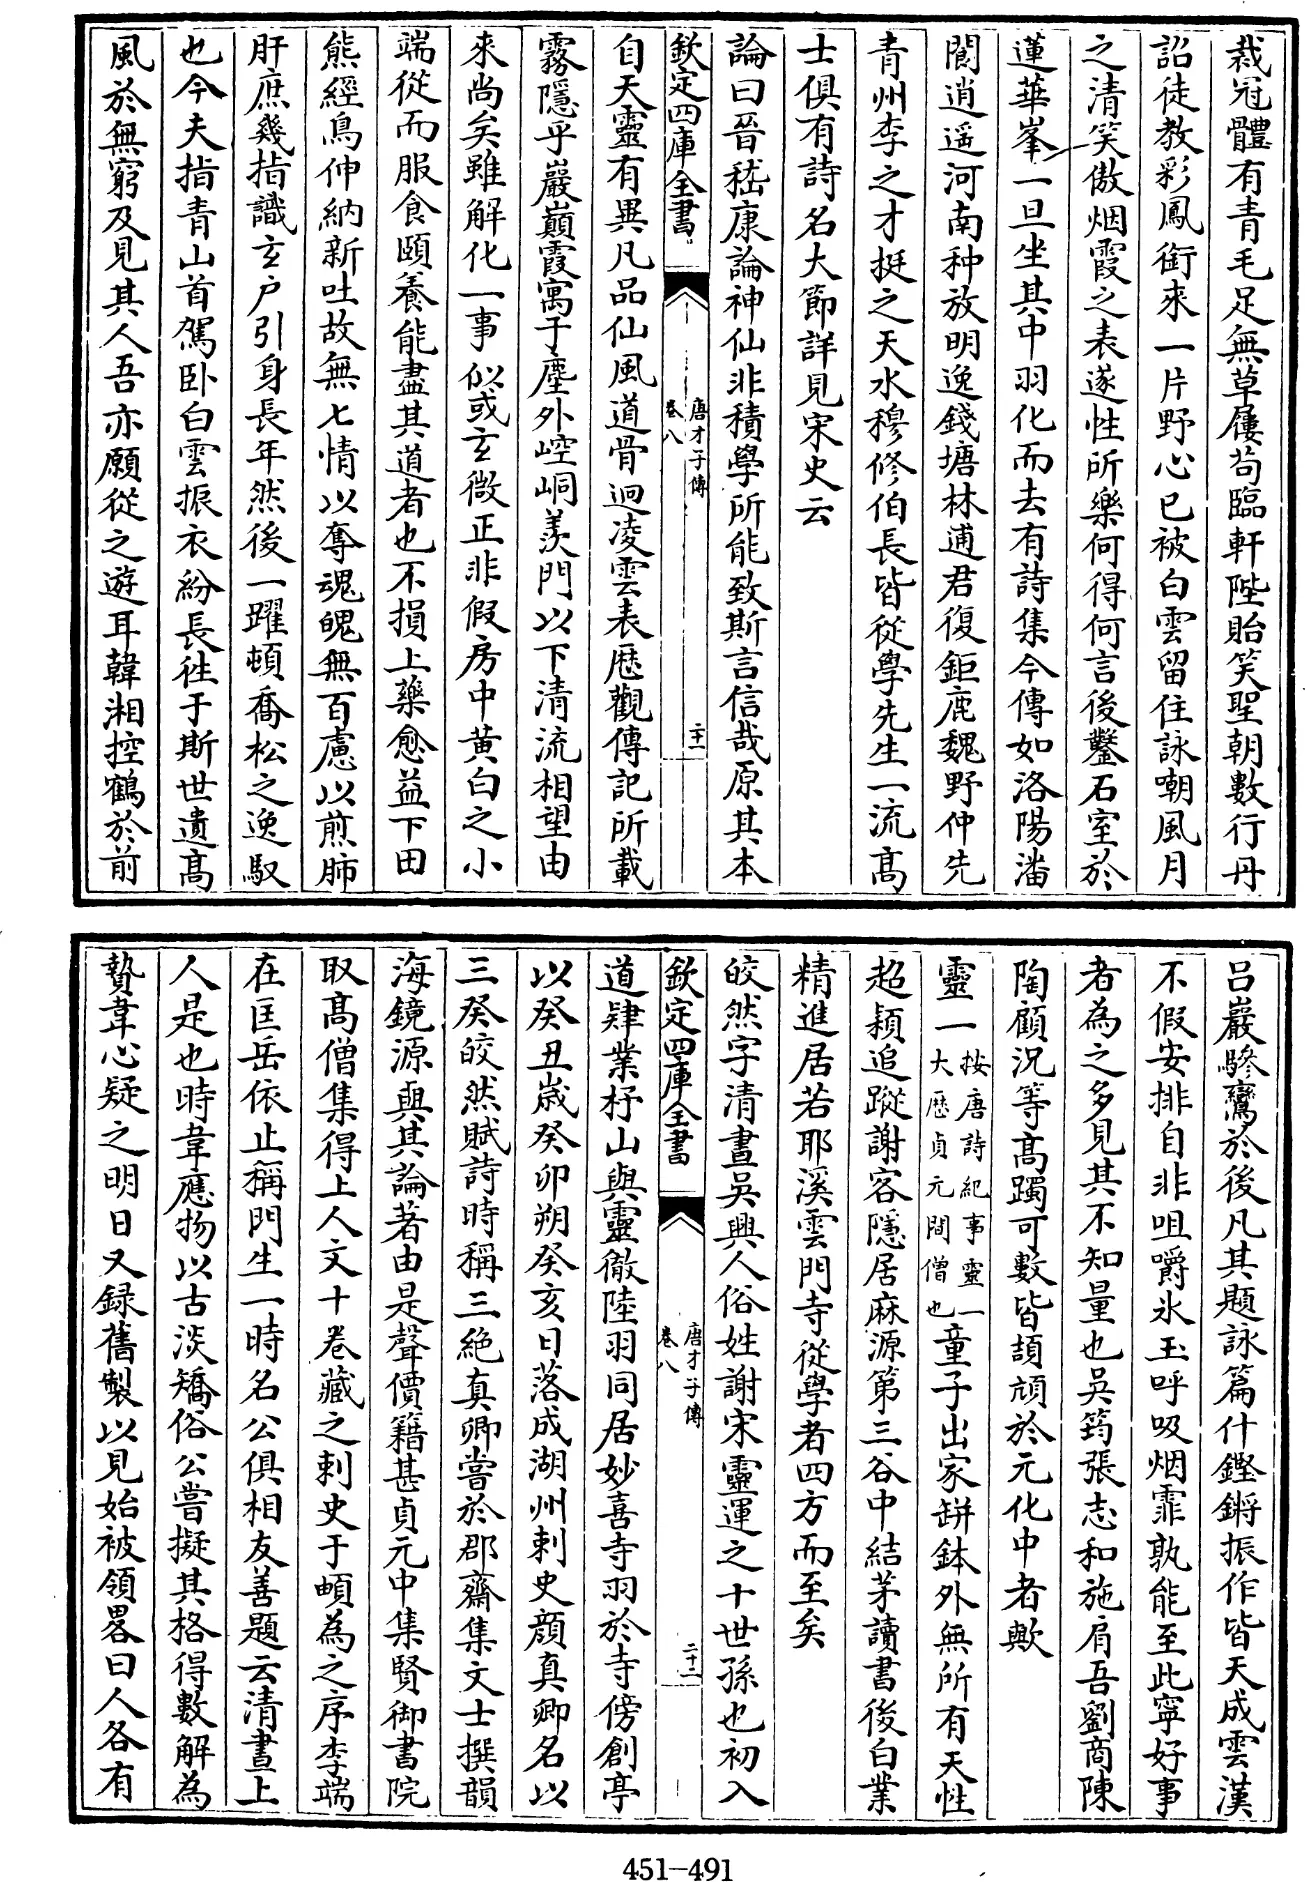 裁冠體有青毛足無草屨苟臨軒陛貽笑聖朝數行丹
詔徒教彩鳳銜來一片野心已被白雲留住詠嘲風月
之清笑傲烟霞之表遂性所樂何得何言後鑿石室於
蓮華峯一旦坐其中羽化而去有詩集今傳如洛陽潘
閬逍遥河南种放明逸錢塘林逋君復鉅鹿魏野仲先
青州李之才挺之天水穆修伯長皆從學先生一流髙
士俱有詩名大節詳見宋史云
論曰晉嵇康論神仙非積學所能致斯言信哉原其本
欽定四庫全書
唐才子傳
卷八
二十一
自天靈有異凡品仙風道骨迥凌雲表厯觀傳記所載
霧隱乎巖巔霞寓于塵外崆峒羡門以下清流相望由
來尚矣雖解化一事似或𤣥微正非假房中黄白之小
端從而服食頤養能盡其道者也不損上藥愈益下田
熊經鳥伸納新吐故無七情以奪魂魄無百慮以煎肺
肝庶幾指識𤣥户引身長年然後一躍頓喬松之逸馭
也今夫指青山首駕卧白雲振衣紛長徃于斯世遺髙
風於無窮及見其人吾亦願從之遊耳韓湘控鶴於前
吕巖驂鸞於後凡其題詠篇什鏗鏘振作皆天成雲漢
不假安排自非咀嚼氷玉呼吸烟霏孰能至此寧好事
者為之多見其不知量也吳筠張志和施肩吾劉商陳
陶顧況等髙躅可數皆頡頏於元化中者歟
靈一按唐詩紀事靈一大厯貞元間僧也童子出家缾鉢外無所有天性
超穎追蹤謝客隱居麻源第三谷中結茅讀書後白業
精進居若耶溪雲門寺從學者四方而至矣
皎然字清晝吳興人俗姓謝宋靈運之十世孫也初入
欽定四庫全書
唐才子傳
卷八
二十二
道肄業杼山與靈徹陸羽同居妙喜寺羽於寺傍創亭
以癸丑嵗癸卯朔癸亥日落成湖州刺史顔真卿名以
三癸皎然賦詩時稱三絶真卿嘗於郡齋集文士撰韻
海鏡源與其論著由是聲價籍甚貞元中集賢御書院
取髙僧集得上人文十卷藏之刺史于頔為之序李端
在匡岳依止稱門生一時名公俱相友善題云清晝上
人是也時韋應物以古淡矯俗公嘗擬其格得數解為
贄韋心疑之明日又録舊製以見始被領畧曰人各有
451-491